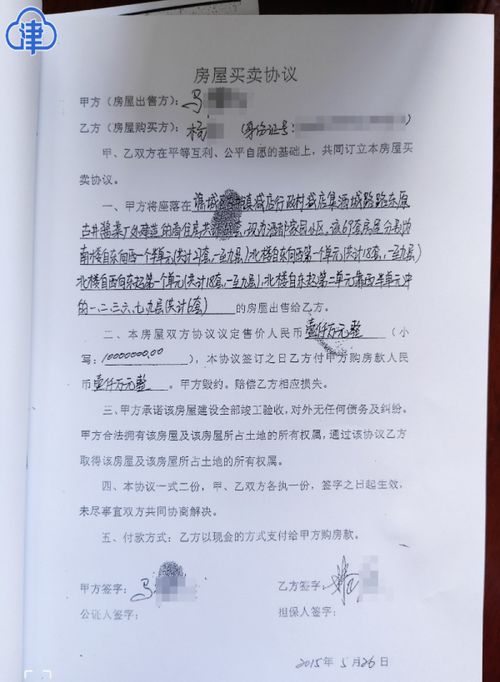 津
房屋买卖协议
甲方（房屋出售方）：马
乙方（房屋购买方）：杨 （身份证号：
甲、乙双方在平等互利、公平自愿的基础上，共同订立本房屋买
卖协议。
一、甲方将座落在 镇城店行政村城店集涡城路路东原
古井 家园小区，该69套房屋分别为
南楼自东向西一单元（共计27套，一至九层）北楼自东向西第一个单元（共计18套，一至九层）
北楼自西向东起第一个单元（共计18套，一至九层），北楼自东起第二单元靠西半单元中
的一、二、三、六、七、九层（共计6套） 的房屋出售给乙方。
二、本房屋双方协议议定售价人民币壹仟万元整（小
写：10000000.00），本协议签订之日乙方付甲方购房款人民
币壹仟万元整。甲方毁约。赔偿乙方相应损失。
三、甲方承诺该房屋建设全部竣工验收，对外无任何债务及纠纷。
甲方合法拥有该房屋及该房屋所占土地的所有权属，通过该协议乙方
取得该房屋及该房屋所占土地的所有权属。
四、本协议一式二份，甲、乙双方各执一份，签字之日起生效，
未尽事宜双方共同协商解决。
五、付款方式：乙方以现金的方式支付给甲方购房款。
甲方签字：马 乙方签字：
公证人签字： 担保人签字：
2015年 5月26日